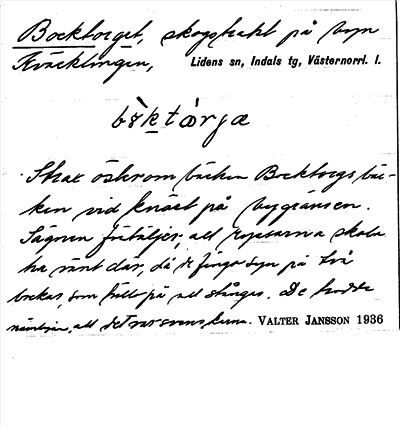 Bocktorget, skogstrakt på byn
Kväcklingen, Lidens sn, Indals tg, Västernorrl. l.
bòktórjæ
Strax öster om bäcken Bocktorgsbäc-
ken vid knäet på bygränsen.
Sägnen förtäljer, att ryssarna skola
ha vänt där, då de fingo syn på två
bockar, som höllo på att stångas. De trodde
nämligen, att det var svenskarna. VALTER JANSSON 1936